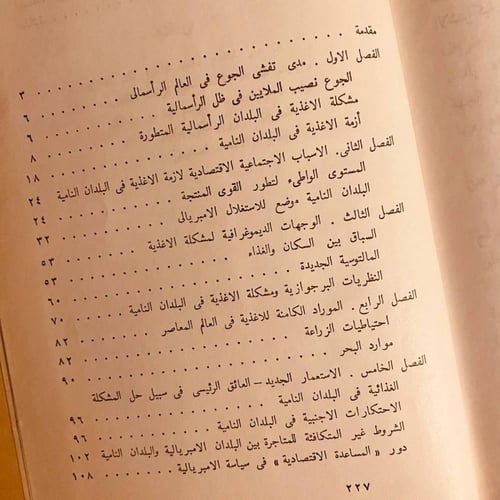 مقدمة . . . . . . . . . . . . ٣
الفصل الاول . مدى تفشى الجوع فى العالم الرأسمالى . . . ٦
الجوع نصيب الملايين فى ظل الرأسمالية . . . . ٦
مشكلة الاغذية فى البلدان الرأسمالية المتطورة . . . ٨
أزمة الاغذية فى البلدان النامية . . . . . . ١٨
الفصل الثانى. الاسباب الاجتماعية الاقتصادية لازمة الاغذية فى البلدان النامية ٢٤
المستوى الواطىء لتطور القوى المنتجة . . . . ٢٤
البلدان النامية موضع للاستغلال الامبريالى . . . . ٣٢
الفصل الثالث . الوجهات الديموغرافية لمشكلة الاغذية . . . ٥٣
السباق بين السكان والغذاء . . . . . . ٥٣
المالتوسية الجديدة . . . . . . . . ٦٠
النظريات البرجوازية ومشكلة الاغذية فى البلدان النامية . . ٧٠
الفصل الرابع . الموراد الكامنة للاغذية فى العالم المعاصر . . . ٨٢
احتياطيات الزراعة . . . . . . . . ٨٢
موارد البحر . . . . . . . . . ٩٠
الفصل الخامس . الاستعمار الجديد – العائق الرئيسى فى سبيل حل المشكلة
الغذائية فى البلدان النامية . . . . . . . ٩٦
الاحتكارات الاجنبية فى البلدان النامية . . . . ٩٦
الشروط غير المتكافئة للمتاجرة بين البلدان الامبريالية والبلدان النامية ١٠٢
دور « المساعدة الاقتصادية » فى سياسة الامبريالية . . . ١٠٨
٢٢٧